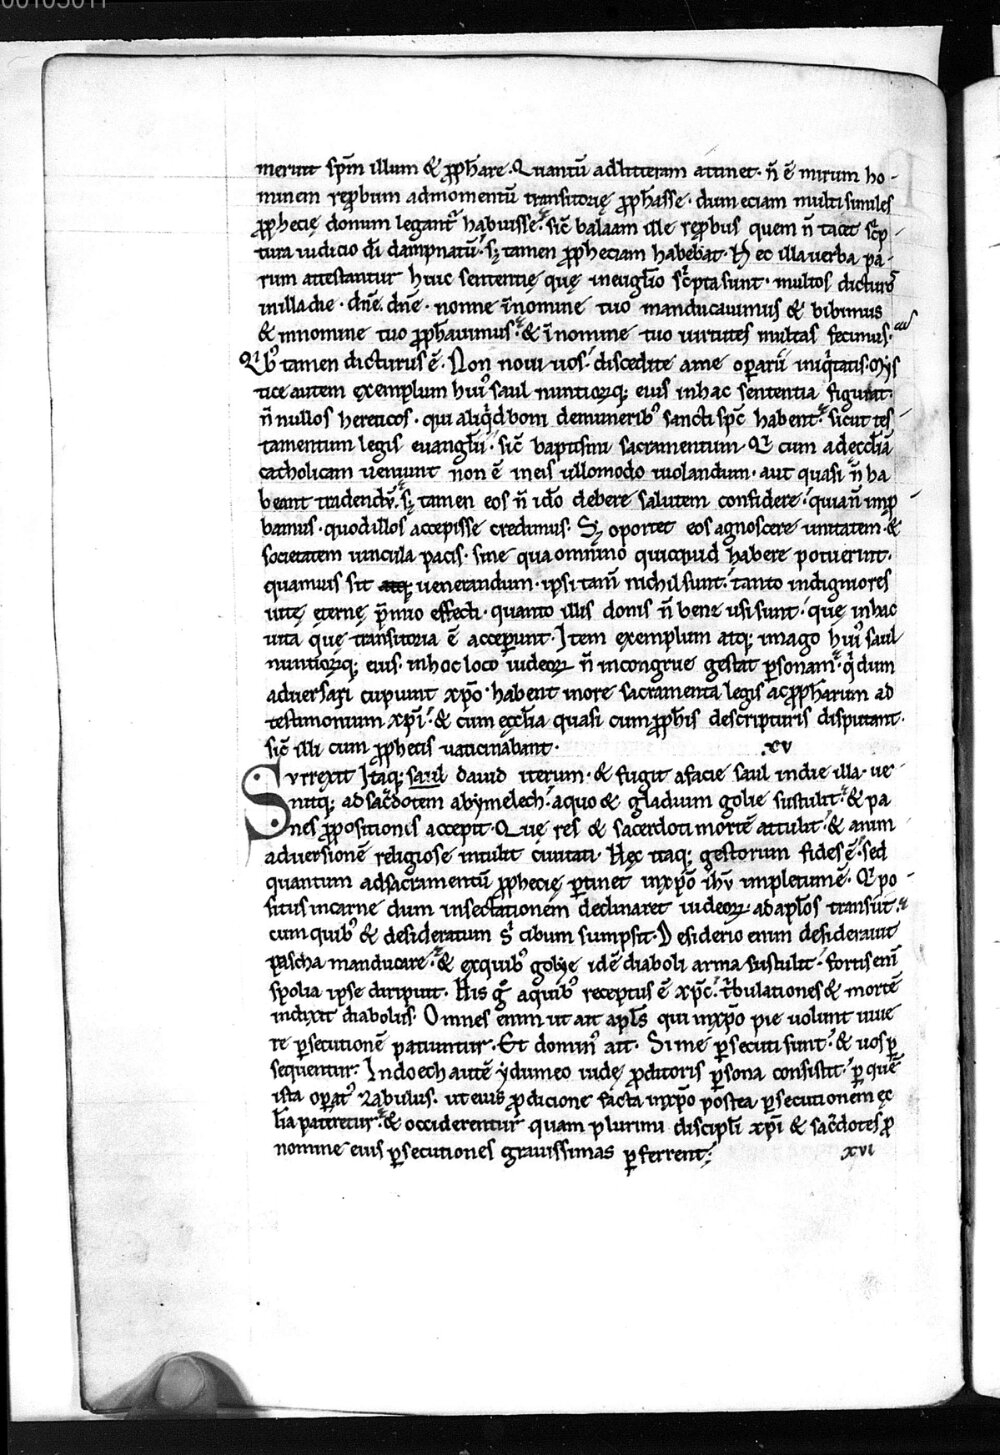 00103011
meruit sp̄m illum & ꝓph̄are. Quantū adlitteram attinet· n̄ ē mirum ho-
minem rep̄bum admomentū transitorię ꝓph̄asse· dum eciam multi similes
ꝓph̄ecię donum legant᷑ habuisse· sic̄ balaam ille rep̄bus quem n̄ tacet sc̄p-
tura iudicio dī dampnatū· sꝫ tamen ꝓph̄eciam habebat· Hec illa uerba pa-
rum attestantur huic sentencię quę ineuḡlio sc̄pta sunt· multos dicturꝰ
inilla die· dn̄e dn̄e· nonne īnomine tuo manducauimus & bibimus
& innomine tuo ꝓph̄auimus· & īnomine tuo uirtutes multas fecimus·
Qibꝰ tamen dicturus ē· Non noui uos· discedite ame oꝑarii iniq̄tatis· Mys
tice autem exemplum huiꝰ saul nuntiorꝫqꝫ eius inhac sententia figurat·
n̄ nullos hereticos· qui aliq̄d boni demuneribꝰ sancti sp̄c habent· sicut tes-
tamentum legis euangl̄ii· sic̄ baptismi sacramentum Q̄ cum adeccl̄iā
catholicam ueniunt n̄on ē ineis ullomodo uiolandum· aut quasi n̄ ha
beant tradendū· sꝫ tamen eos n̄ idō debere salutem confidere· quia n̄ imp̄-
bamus· quod illos accepisse credimus· Sꝫ oportet eos agnoscere unitatem· &
societatem uincula pacis· sine qua omnino quicquid habere potuerint·
quamuis sit atqꝫ uenerandum· ipsi tam̄ nichil sunt· tanto indigniores
uitę eternę p̄mio effecti· quanto illis donis n̄ bene usi sunt· quę inhac
uita quę transitoria ē acceꝑunt· Item exemplum atqꝫ imago huiꝰ saul
nuntiorꝫqꝫ eius· inhoc loco iudeorꝫ n̄ incongrue gestat ꝑsonam· q̄ dum
aduersari cupiunt xp̄o· habent more sacramenta legis ac ꝓph̄arum ad
testimonium xp̄i· & cum eccl̄ia quasi cum ꝓph̄is descripturis disputant·
sic̄ illi cum ꝓphetis uaticinabant· xv
Surrexit Itaqꝫ saul dauid iterum· & fugit afacie saul indie illa· ue-
nitqꝫ ad sac̄dotem abymelech· aquo & gladium golie sustulit· & pa-
nes ꝓpositionis accepit· Quę res & sacerdoti mortē attulit· & anim
aduersionē religiose intulit ciuitati· Hęc itaqꝫ gestorum fides ē· sed
quantum adsacramentū ꝓph̄ecię ꝑtinet inxp̄o ih̄u impletum ē· Q̄ po-
situs incarne dum insectationem declinaret iudeorꝫ adapl̄os transiit·
cum quibꝰ & desideratum s̄ cibum sumpsit· Desiderio enim desideraui
pascha manducare· & exquibꝰ golye idē diaboli arma sustulit· fortis enī
spolia ipse diripuit· His g̊ aquibꝰ receptus ē xp̄c· t̄bulationes & mortē
indixit diabolus· Omnes enim ut ait apl̄s qui inxp̄o pie uolunt uiue
re ꝑsecutionē patiuntur· Et dominꝰ ait· Si me ꝑsecuti sunt· & uos ꝑ
sequentur· Indoech autē ydumeo iudę ꝓditoris ꝑsona consistit· ꝑ quē
ista oꝑatꝰ zabulus· ut eius ꝓdicione facta inxp̄o postea ꝑsecutionem ęc
l̄ia pateretur· & occiderentur quam plurimi discipl̄i xp̄i & sac̄dotes ꝓ
nomine eius ꝑsecutiones grauissimas ꝑferrent· xvi